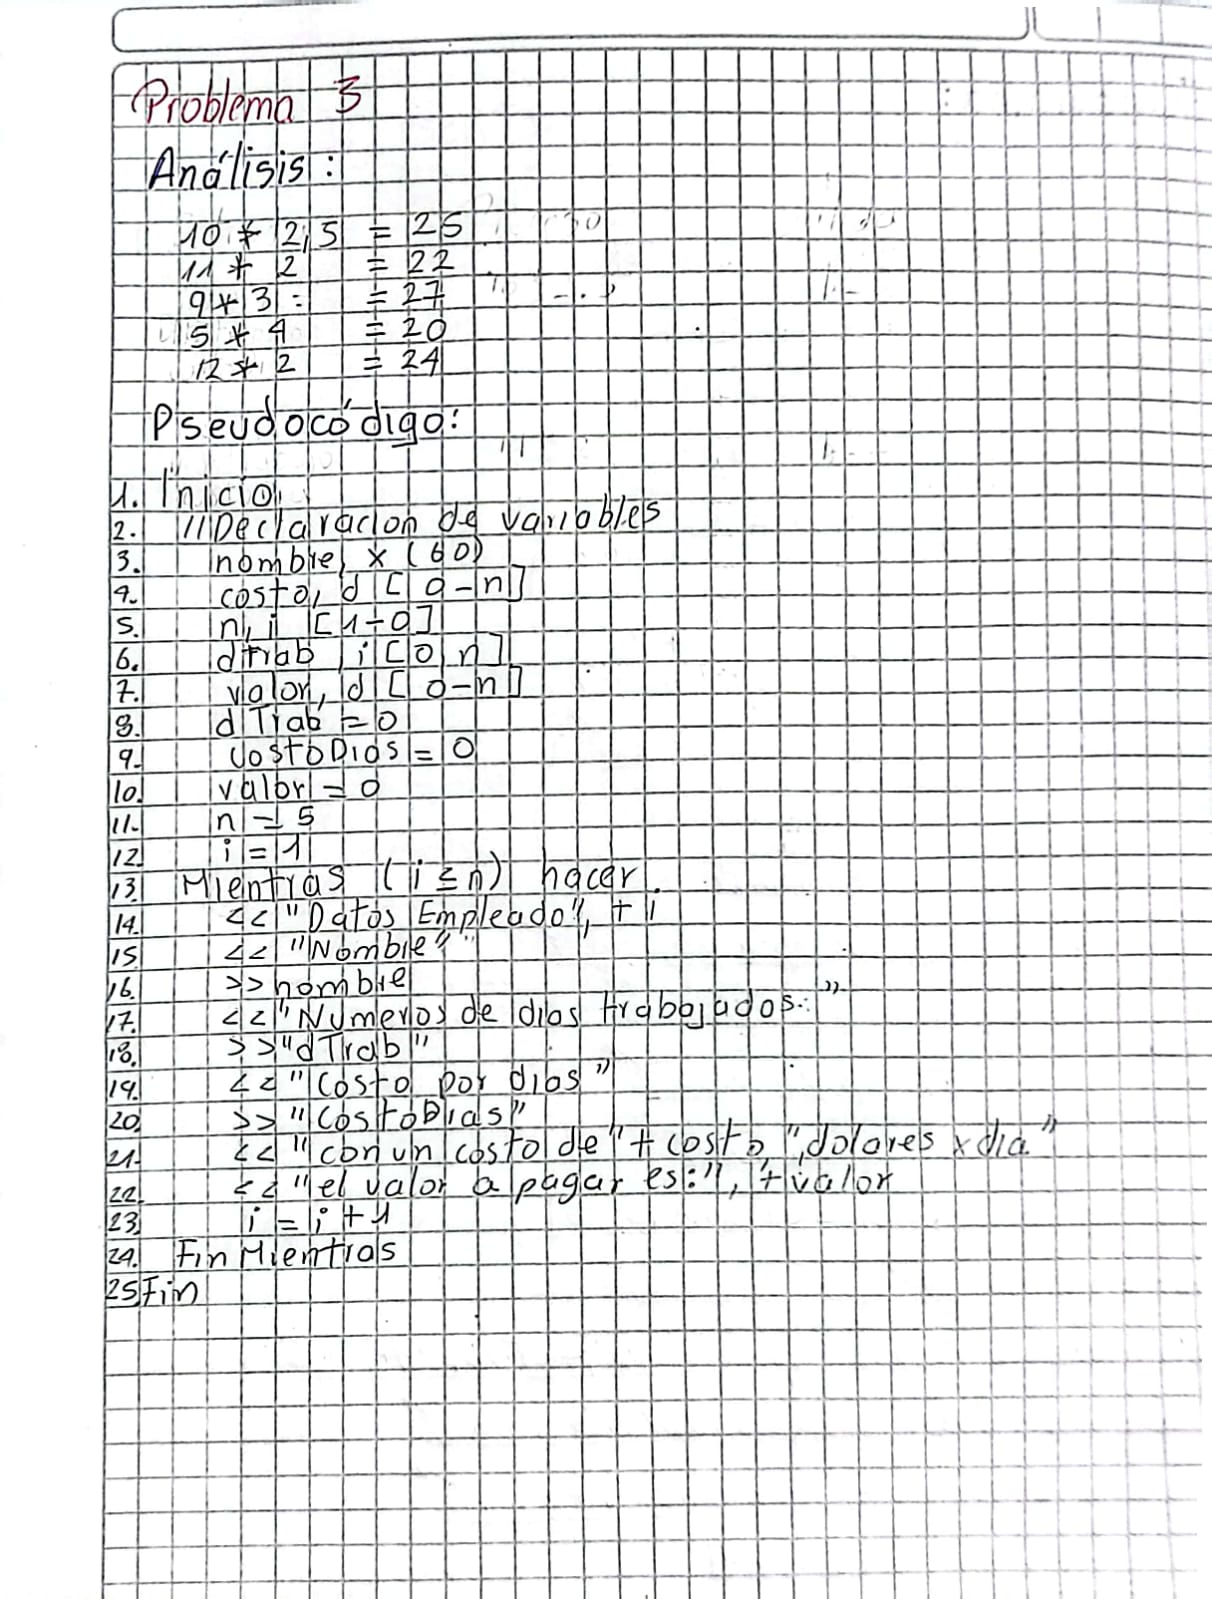 Problema 3
Análisis:
10 * 2,5 = 25
11 * 2 = 22
9 * 3 = 27
5 * 4 = 20
12 * 2 = 24
Pseudocódigo:
1. Inicio
2. //Declaración de variables
3. nombre, x (60)
4. costo, d [0-n]
5. n, i [1-0]
6. dtrab, i [0, n]
7. valor, d [0-n]
8. dTrab = 0
9. CostoDias = 0
10. valor = 0
11. n = 5
12. i = 1
13. Mientras (i ≤ n) hacer.
14. << "Datos Empleado", + i
15. << "Nombre"
16. >> nombre
17. << "Numeros de dias trabajados:"
18. >> "dTrab"
19. << "Costo por dias"
20. >> "CostoDias"
21. << "con un costo de" + costo, "dolares x dia"
22. << "el valor a pagar es:", + valor
23. i = i + 1
24. Fin Mientras
25 Fin